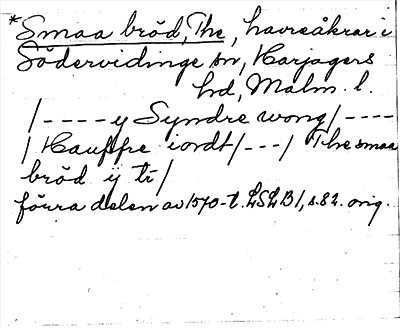 *Smaa bröd, The, havreåkrar i
Södervidinge sn, Harjagers
hd, Malm. l.
/----y Syndre wong/----
/Hauffre iordt/---/ The smaa
bröd ÿ tr/
förra delen av 1570-t. LSLB 1, s. 82. orig.